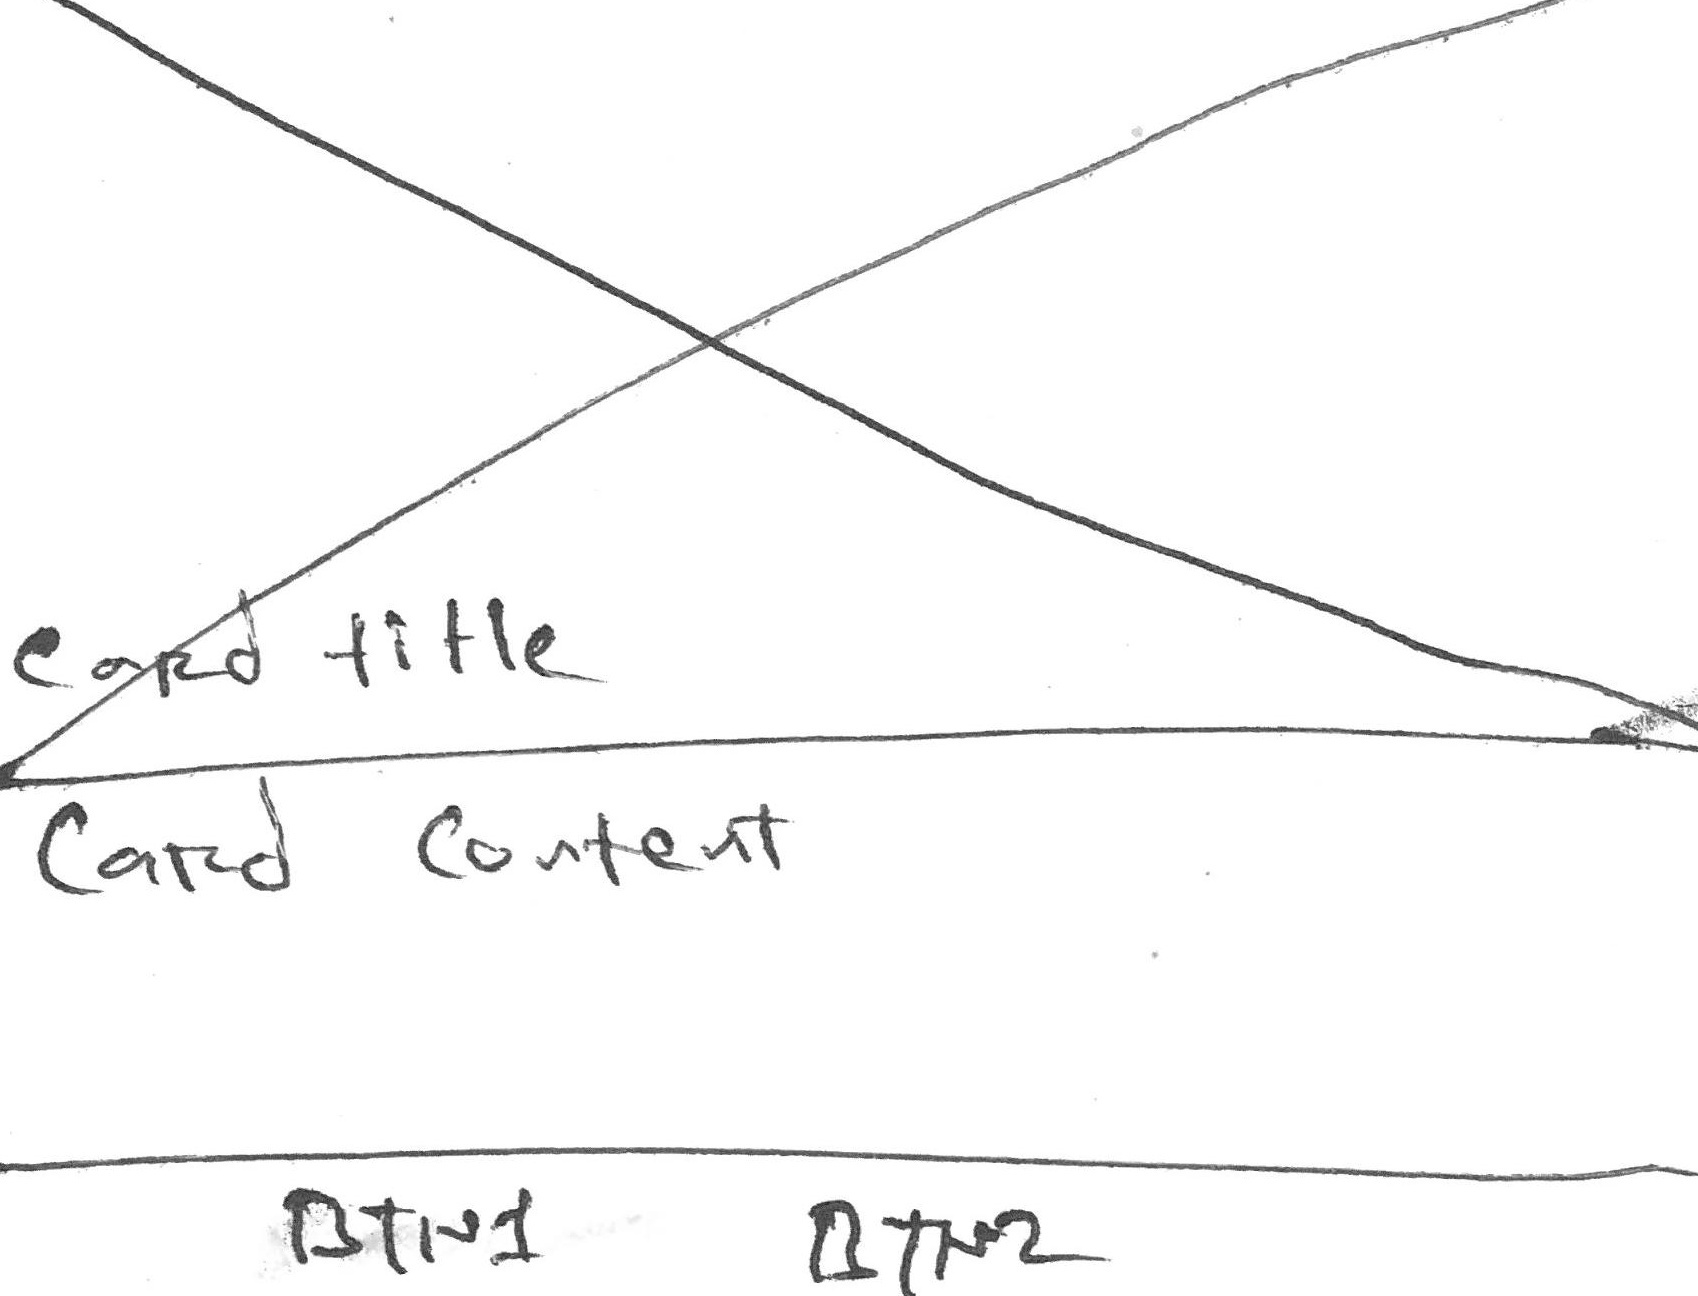 Card title
Card Content
BTN1 BTN2